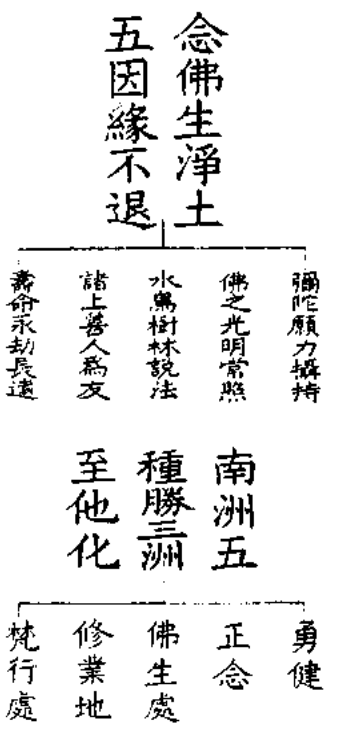 念佛生淨土
五因緣不退
彌陀願力攝持
佛之光明常照
水鳥樹林説法
諸上善人為友
壽命永劫長遠
南洲五
種勝三洲
至他化
勇健
正念
佛生處
修業地
梵行處